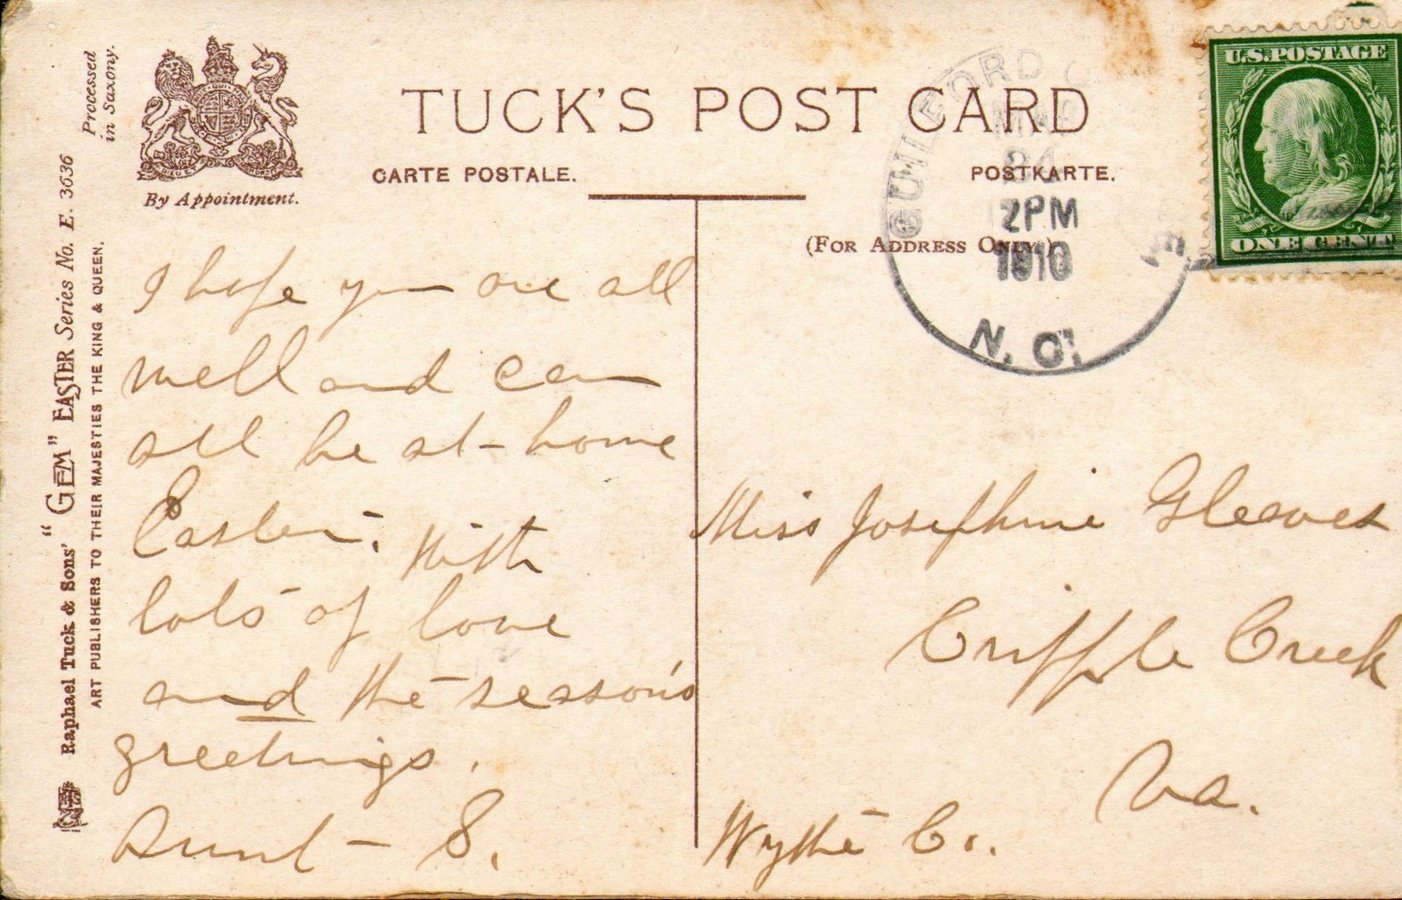 Processed
in Saxony.
By Appointment.
Raphael Tuck & Sons' "GEM" EASTER Series No. E. 3636
ART PUBLISHERS TO THEIR MAJESTIES THE KING & QUEEN.
TUCK'S POST CARD
CARTE POSTALE.
POSTKARTE.
(FOR ADDRESS ONLY)
GUILFORD C
MAR
24
2PM
1910
N. C.
U.S. POSTAGE
ONE CENT
I hope you are all
well and can
all be at home
Easter. With
lots of love
and the season's
greetings.
Aunt S.
Miss Josephine Gleaves
Cripple Creek
Va.
Wythe Co.